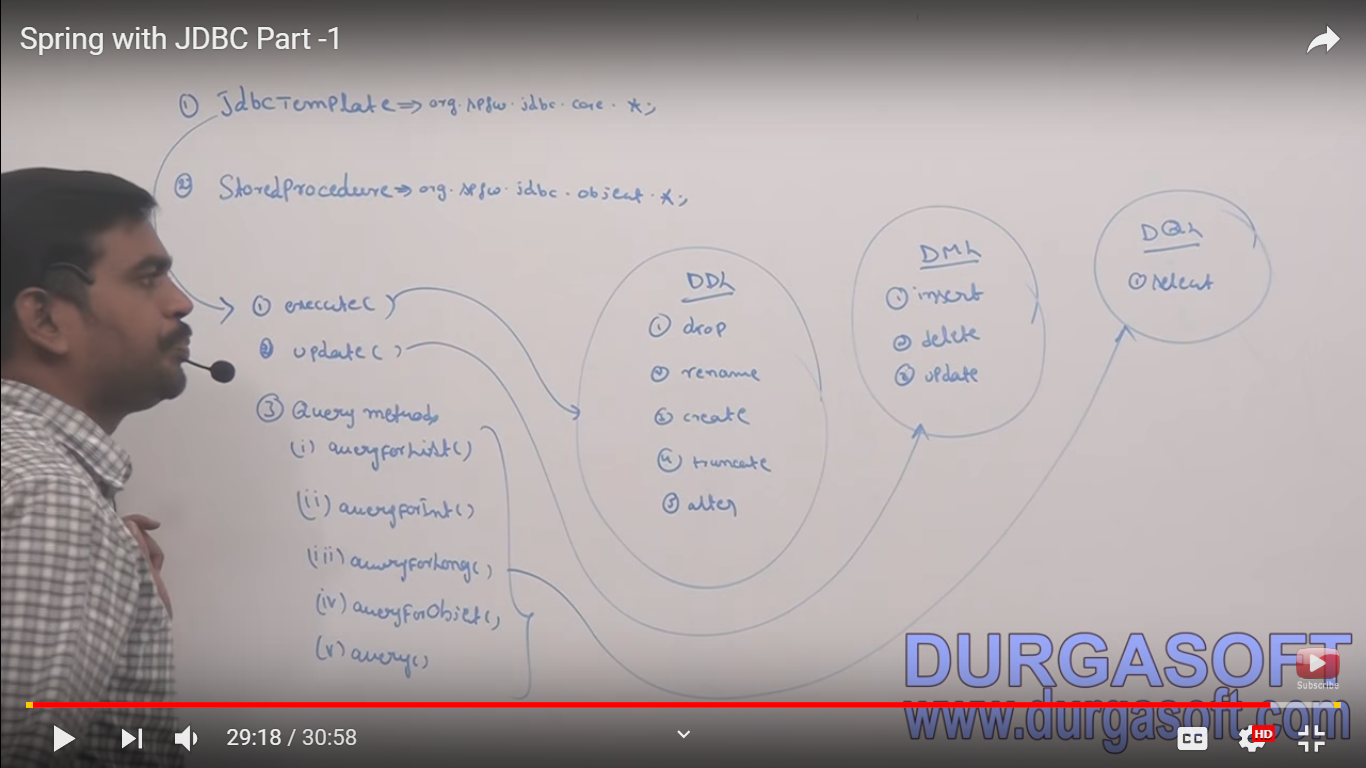 Spring with JDBC Part -1
① JdbcTemplate ⇒ org.spfw.jdbc.core.*;
② StoredProcedure ⇒ org.spfw.jdbc.object.*;
① execute()
② update()
③ Query methods
(i) queryForList()
(ii) queryForInt()
(iii) queryForLong()
(iv) queryForObject()
(v) query()
DDL
① drop
② rename
③ create
④ truncate
⑤ alter
DML
① insert
② delete
③ update
DQL
① select
DURGASOFT
www.durgasoft.com
Subscribe
29:18 / 30:58
CC
HD